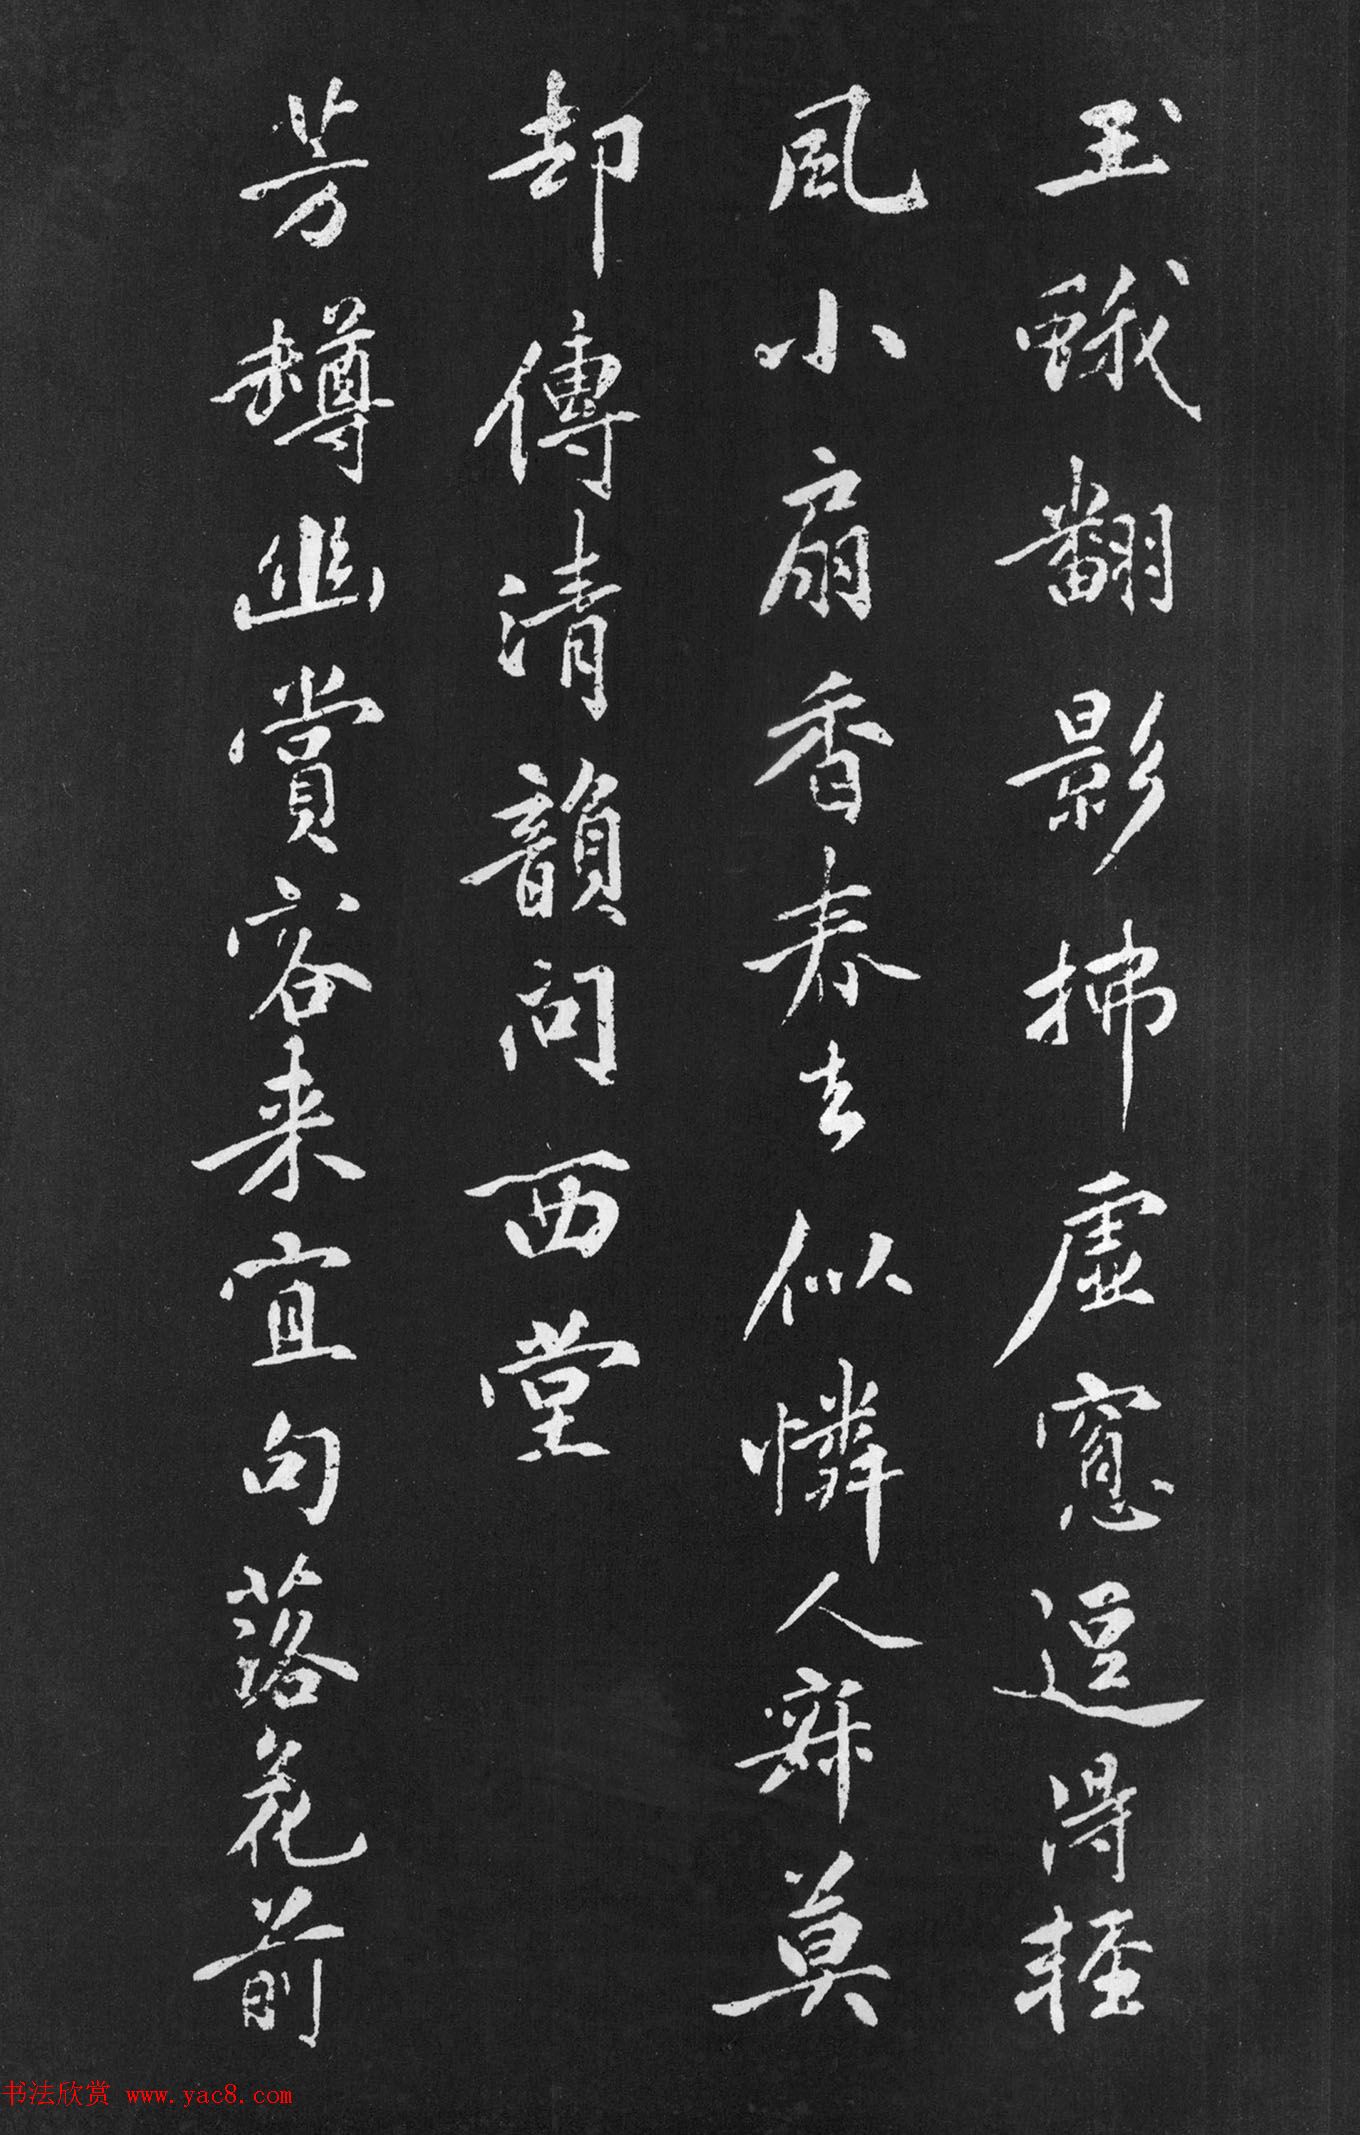 玉蛾翻影拂虛窻逗得輕
風小扇香春去似憐人寐莫
却傳清韻問西堂
芳罇幽賞客来宜句落花前
书法欣赏 www.yac8.com